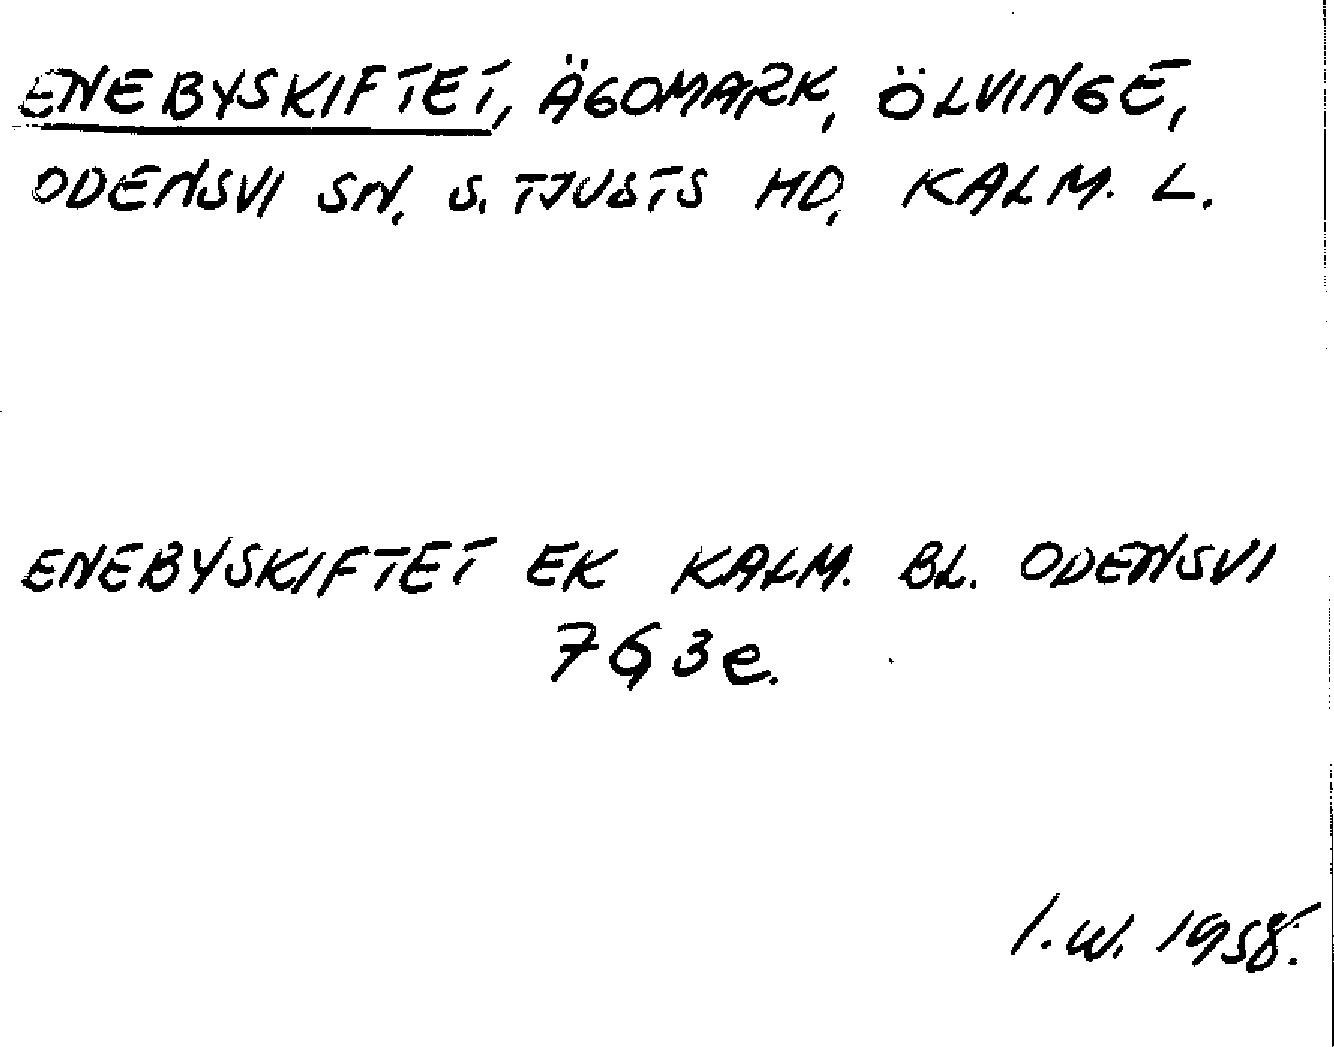 ENEBYSKIFTET, ÄGOMARK, ÖLVINGE,
ODENSVI SN, S. TJUSTS HD, KALM. L.
ENEBYSKIFTET EK KALM. BL. ODENSVI
763e.
I.W. 1958.